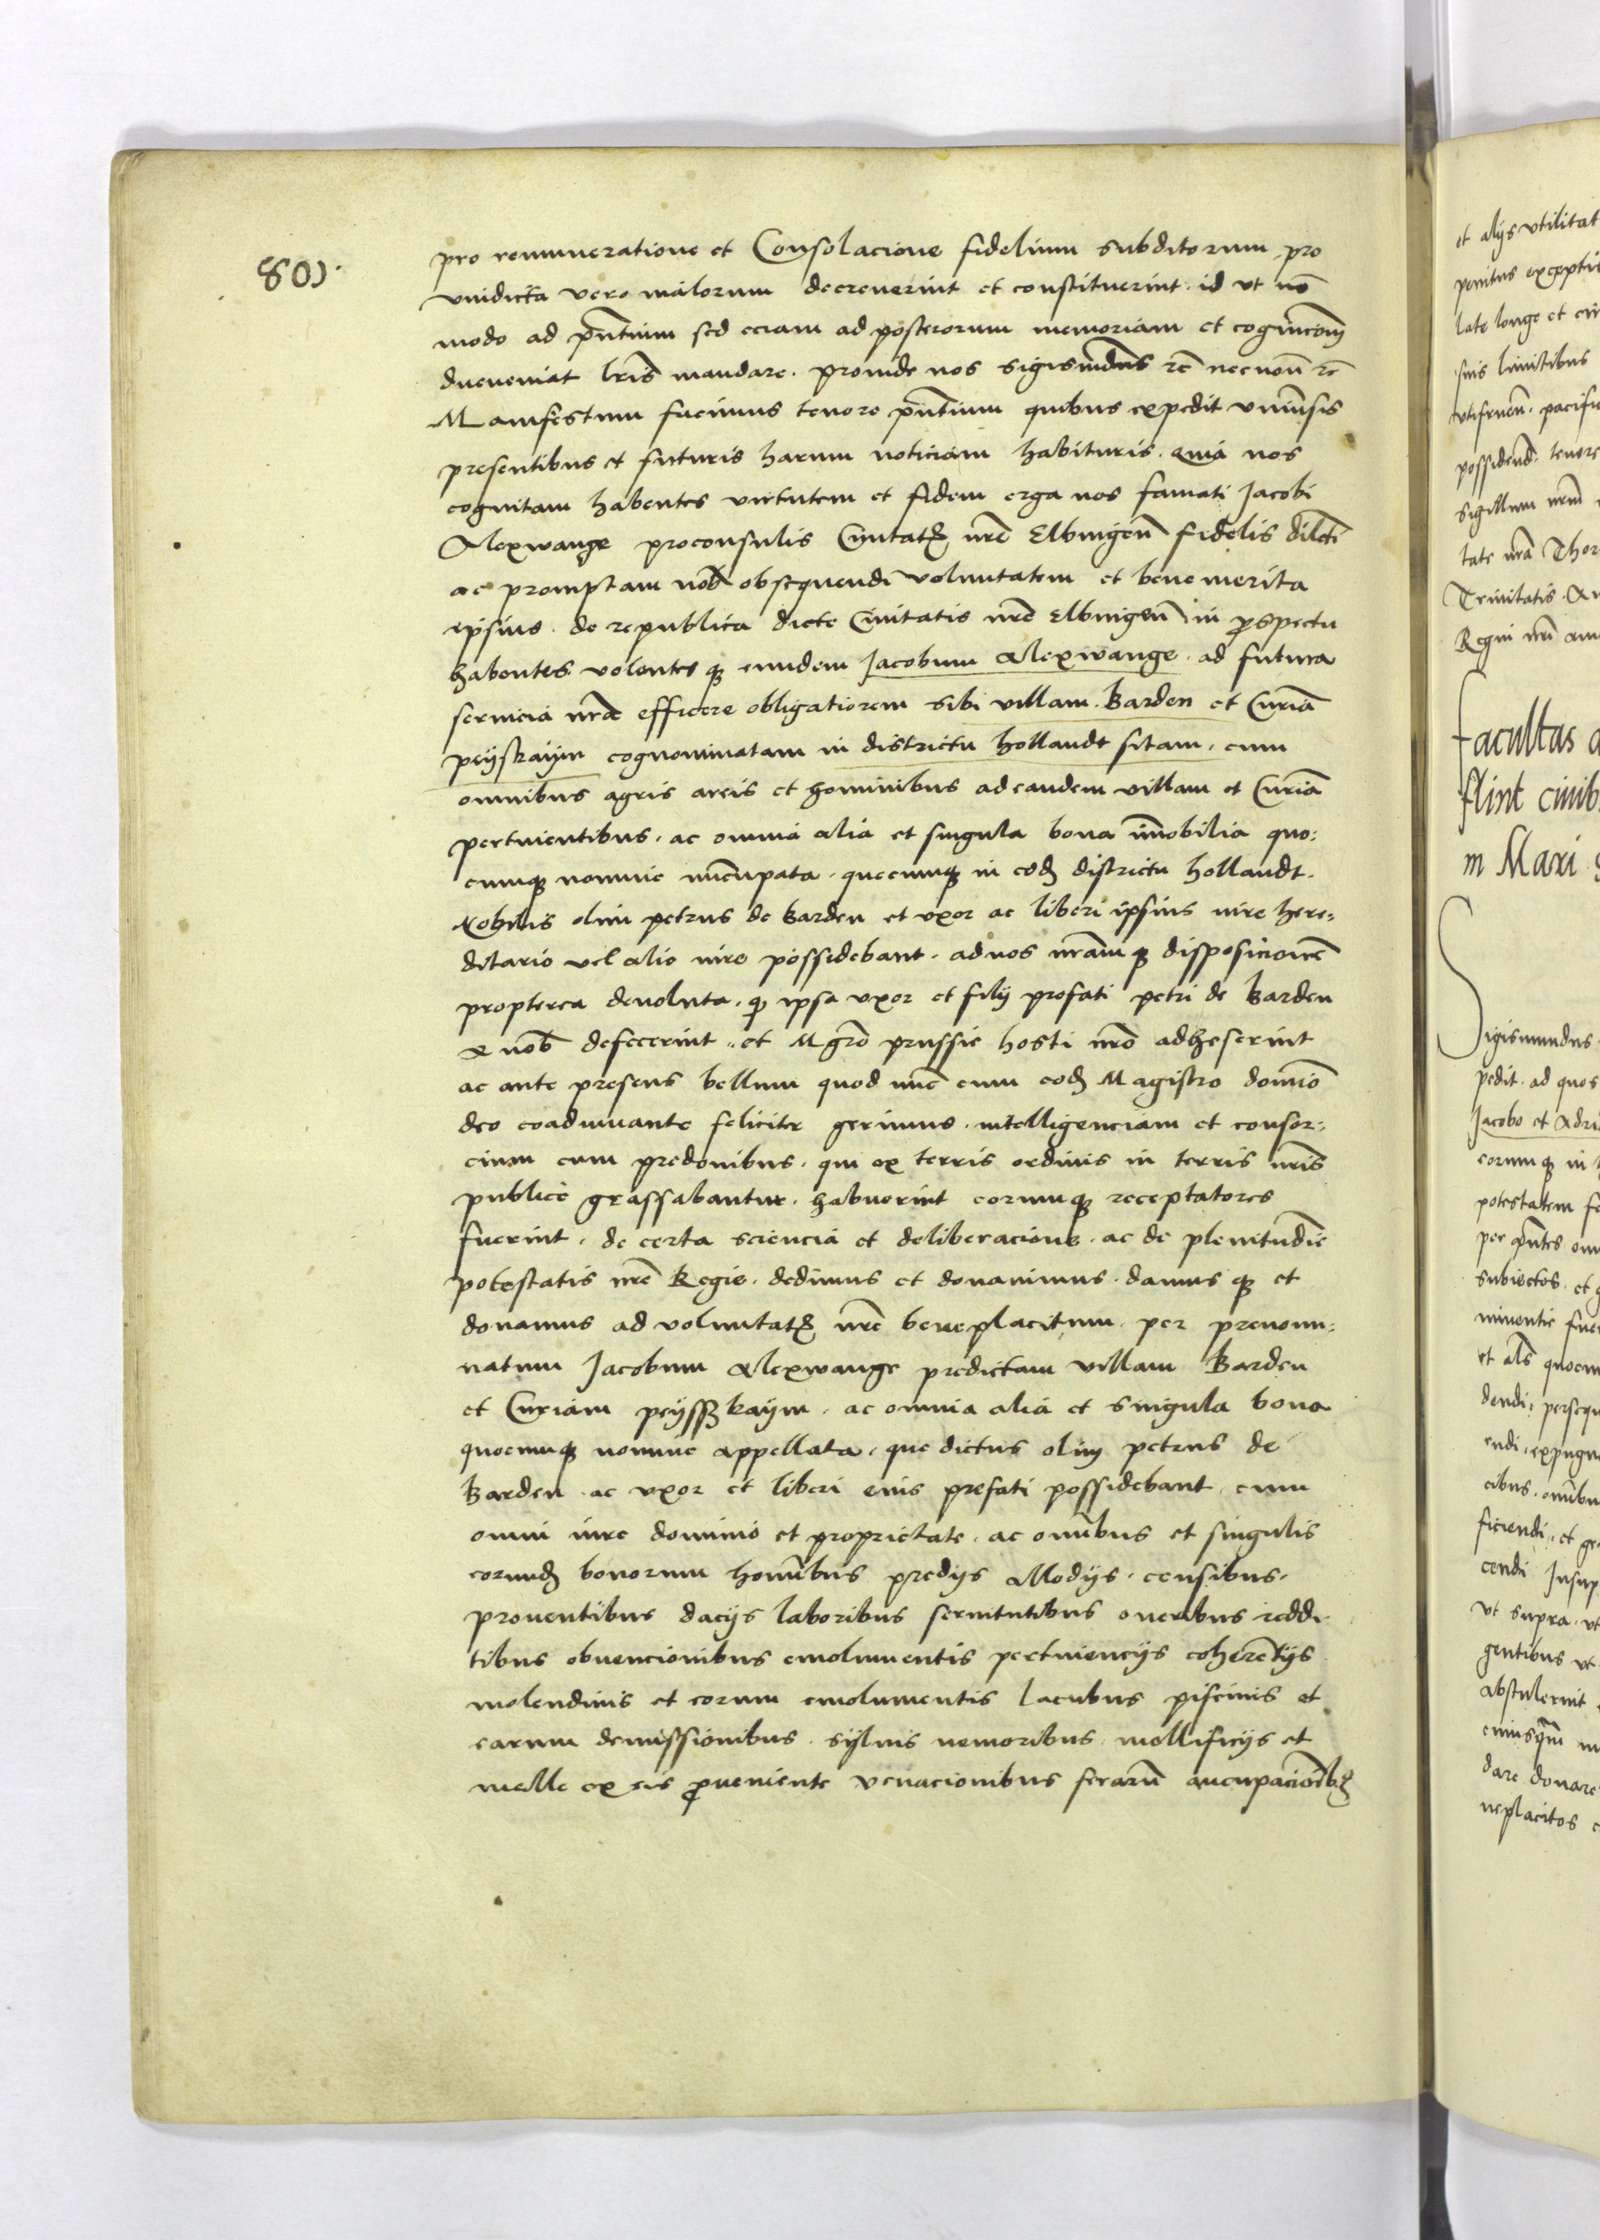 801.
pro remuneratione et Consolacione fidelium subditorum, pro
vindicta vero malorum decreverint et constituerint id ut nō
modo ad pñtium sed eciam ad posterorum memoriam et cognicōm
deveniat lrīs mandare. proinde nos sigismūdus rē necnon rē
Manifestum facimus tenore pñtium quibus expedit vniūsis
presentibus et futuris harum noticiam habituris. quia nos
cognitam habentes virtutem et fidem erga nos famati Jacobi
Alexwange proconsulis Ciuitatꝫ nrē Elbingeñ fidelis dilcti
ac promptam nob̄ obsequendi voluntatem et benemerita
ipsius. de republica dicte Ciuitatis nrē Elbingeñ in prospectu
habentes volentes qꝫ eundem Jacobum Alexwange. ad futura
seruicia nrā efficere obligatiorem sibi villam. Barden et Curiā
peÿskaÿm cognominatam in districtu hollandt sitam, cum
omnibus agris areis et hominibus ad eandem villam et Curiā
pertinentibus, ac omnia alia et singula bona im̄obilia quo:
cumqꝫ nomine nūcupata. quecumqꝫ in eodꝫ districtu hollandt.
Nobilis olim petrus de Barden et vxor ac liberi ipsius iure here:
ditario vel alio iure possidebant. ad nos nrāmqꝫ disposicionē
propterea deuoluta, qꝫ ipsa vxor et filij prefati petri de Barden
a nob̄ defecerint, et Mgrō prussie hosti nrō adheserint
ac ante presens bellum quod nūc cum eodꝫ Magistro domīo
deo coadiuuante feliciter gerimus. intelligenciam et consor:
cium cum predonibus. qui ex terris ordinis in terris nrīs
publice grassabantur. habuerint eorumqꝫ receptatores
fuerint. de certa sciencia et deliberacione. ac de plenitudīe
potestatis nrē Regie. dedimus et donauimus. damus qꝫ et
donamus ad voluntatꝫ nrē beneplacitum. per prenomi:
natum Jacobum Alexwange predictam villam Barden
et Curiam peÿsskaÿm. ac omnia alia et singula bona
quocumqꝫ nomine appellata, que dictus olim petrus de
Barden. ac vxor et liberi eius prefati possidebant. cum
omni iure dominio et proprietate. ac omībus et singulis
eorundꝫ bonorum homībus predijs Allodijs. censibus.
prouentibus dacijs laboribus seruitutibus oneribus reddi
tibus obuencionibus emolumentis pertinencijs coherētijs
molendinis et eorum emolumentis lacubus piscinis et
earum demissionibus. sÿluis nemoribus. mellificijs et
melle ex eis proueniente venacionibus ferarū aucupacionibꝫ
et alijs vtilitat
penitus excepti
late longe et
suis limitibus
pacifi
possidend. tenore
sigillum nrm
tate nrā Thor
Trinitatis.
Regni nri
facultas
flint
m Maxi
Sigismundus
pedit. ad quos
Jacobo et Adri
eorumqꝫ in
potestatem
per pñtes
subiectos. et
et als quocum
dendi. persequ
endi. expugn
cibus. omibu
ficiendi. et
cendi Insup
vt supra. vt
gentibus vt
abstulerint
dare donare
neplacitos